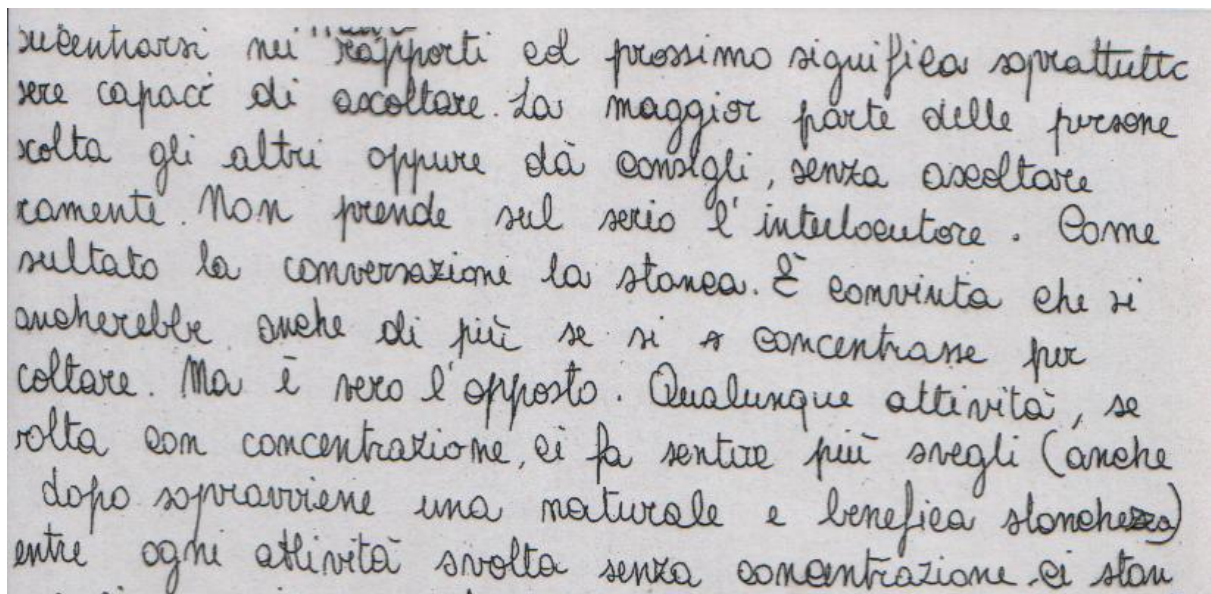 ncentrarsi nei rapporti col prossimo significa soprattutto
sere capaci di ascoltare. La maggior parte delle persone
scolta gli altri oppure dà consigli, senza ascoltare
ramente. Non prende sul serio l'interlocutore. Come
sultato la conversazione la stanca. È convinta che si
ancherebbe anche di più se si s concentrasse per
coltare. Ma è vero l'opposto. Qualunque attività, se
volta con concentrazione, ci fa sentire più svegli (anche
dopo sopravviene una naturale e benefica stanchezza)
entre ogni attività svolta senza concentrazione ci stan